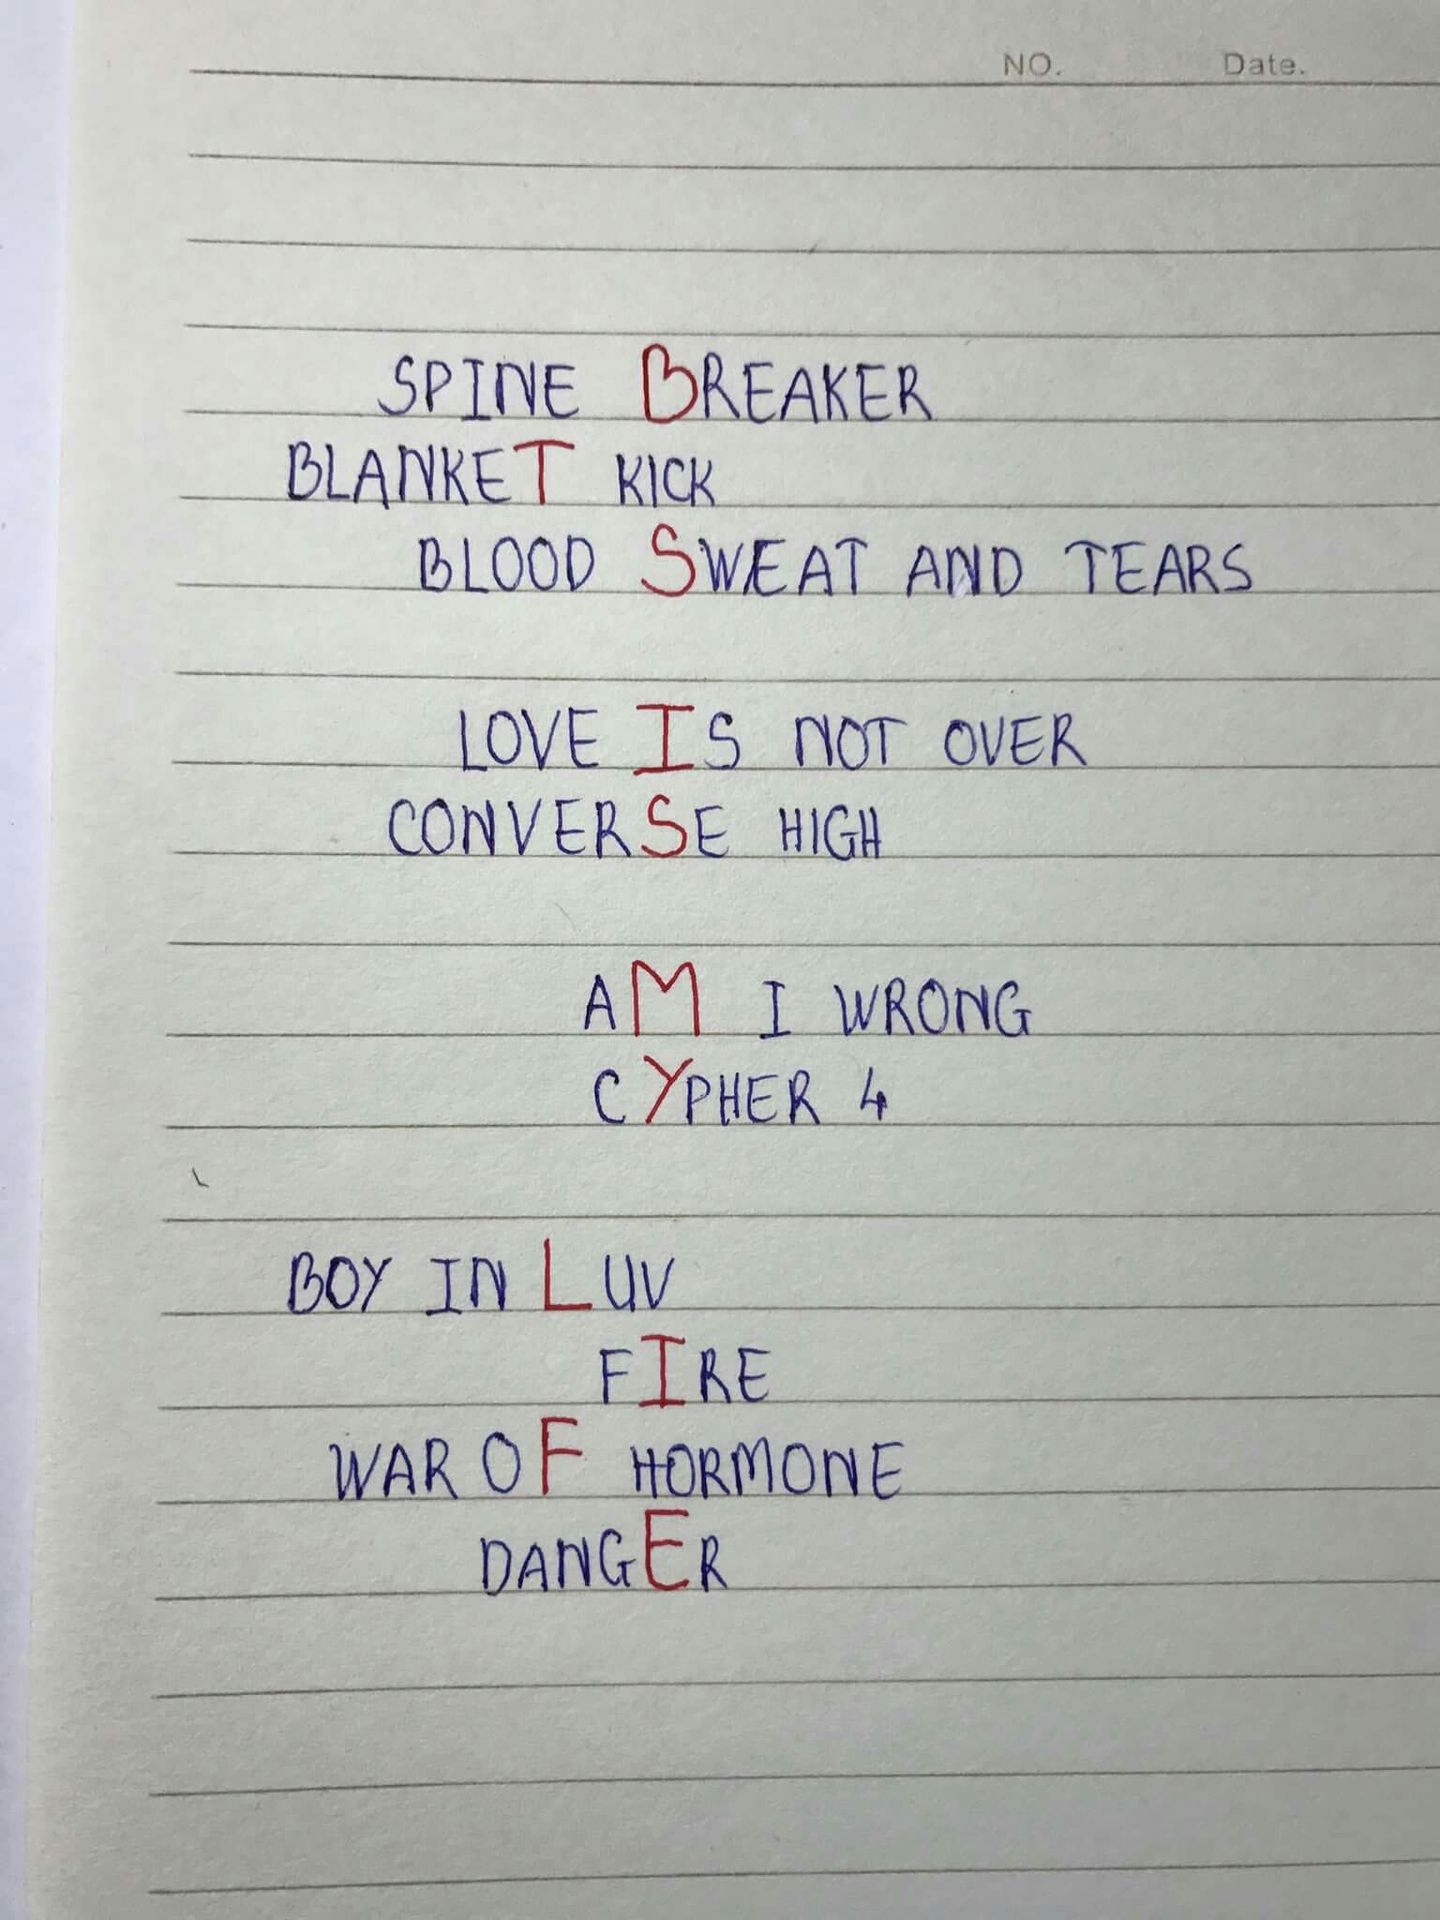 NO. Date.
SPINE BREAKER
BLANKET KICK
BLOOD SWEAT AND TEARS
LOVE IS NOT OVER
CONVERSE HIGH
AM I WRONG
CYPHER 4
BOY IN LUV
FIRE
WAR OF HORMONE
DANGER